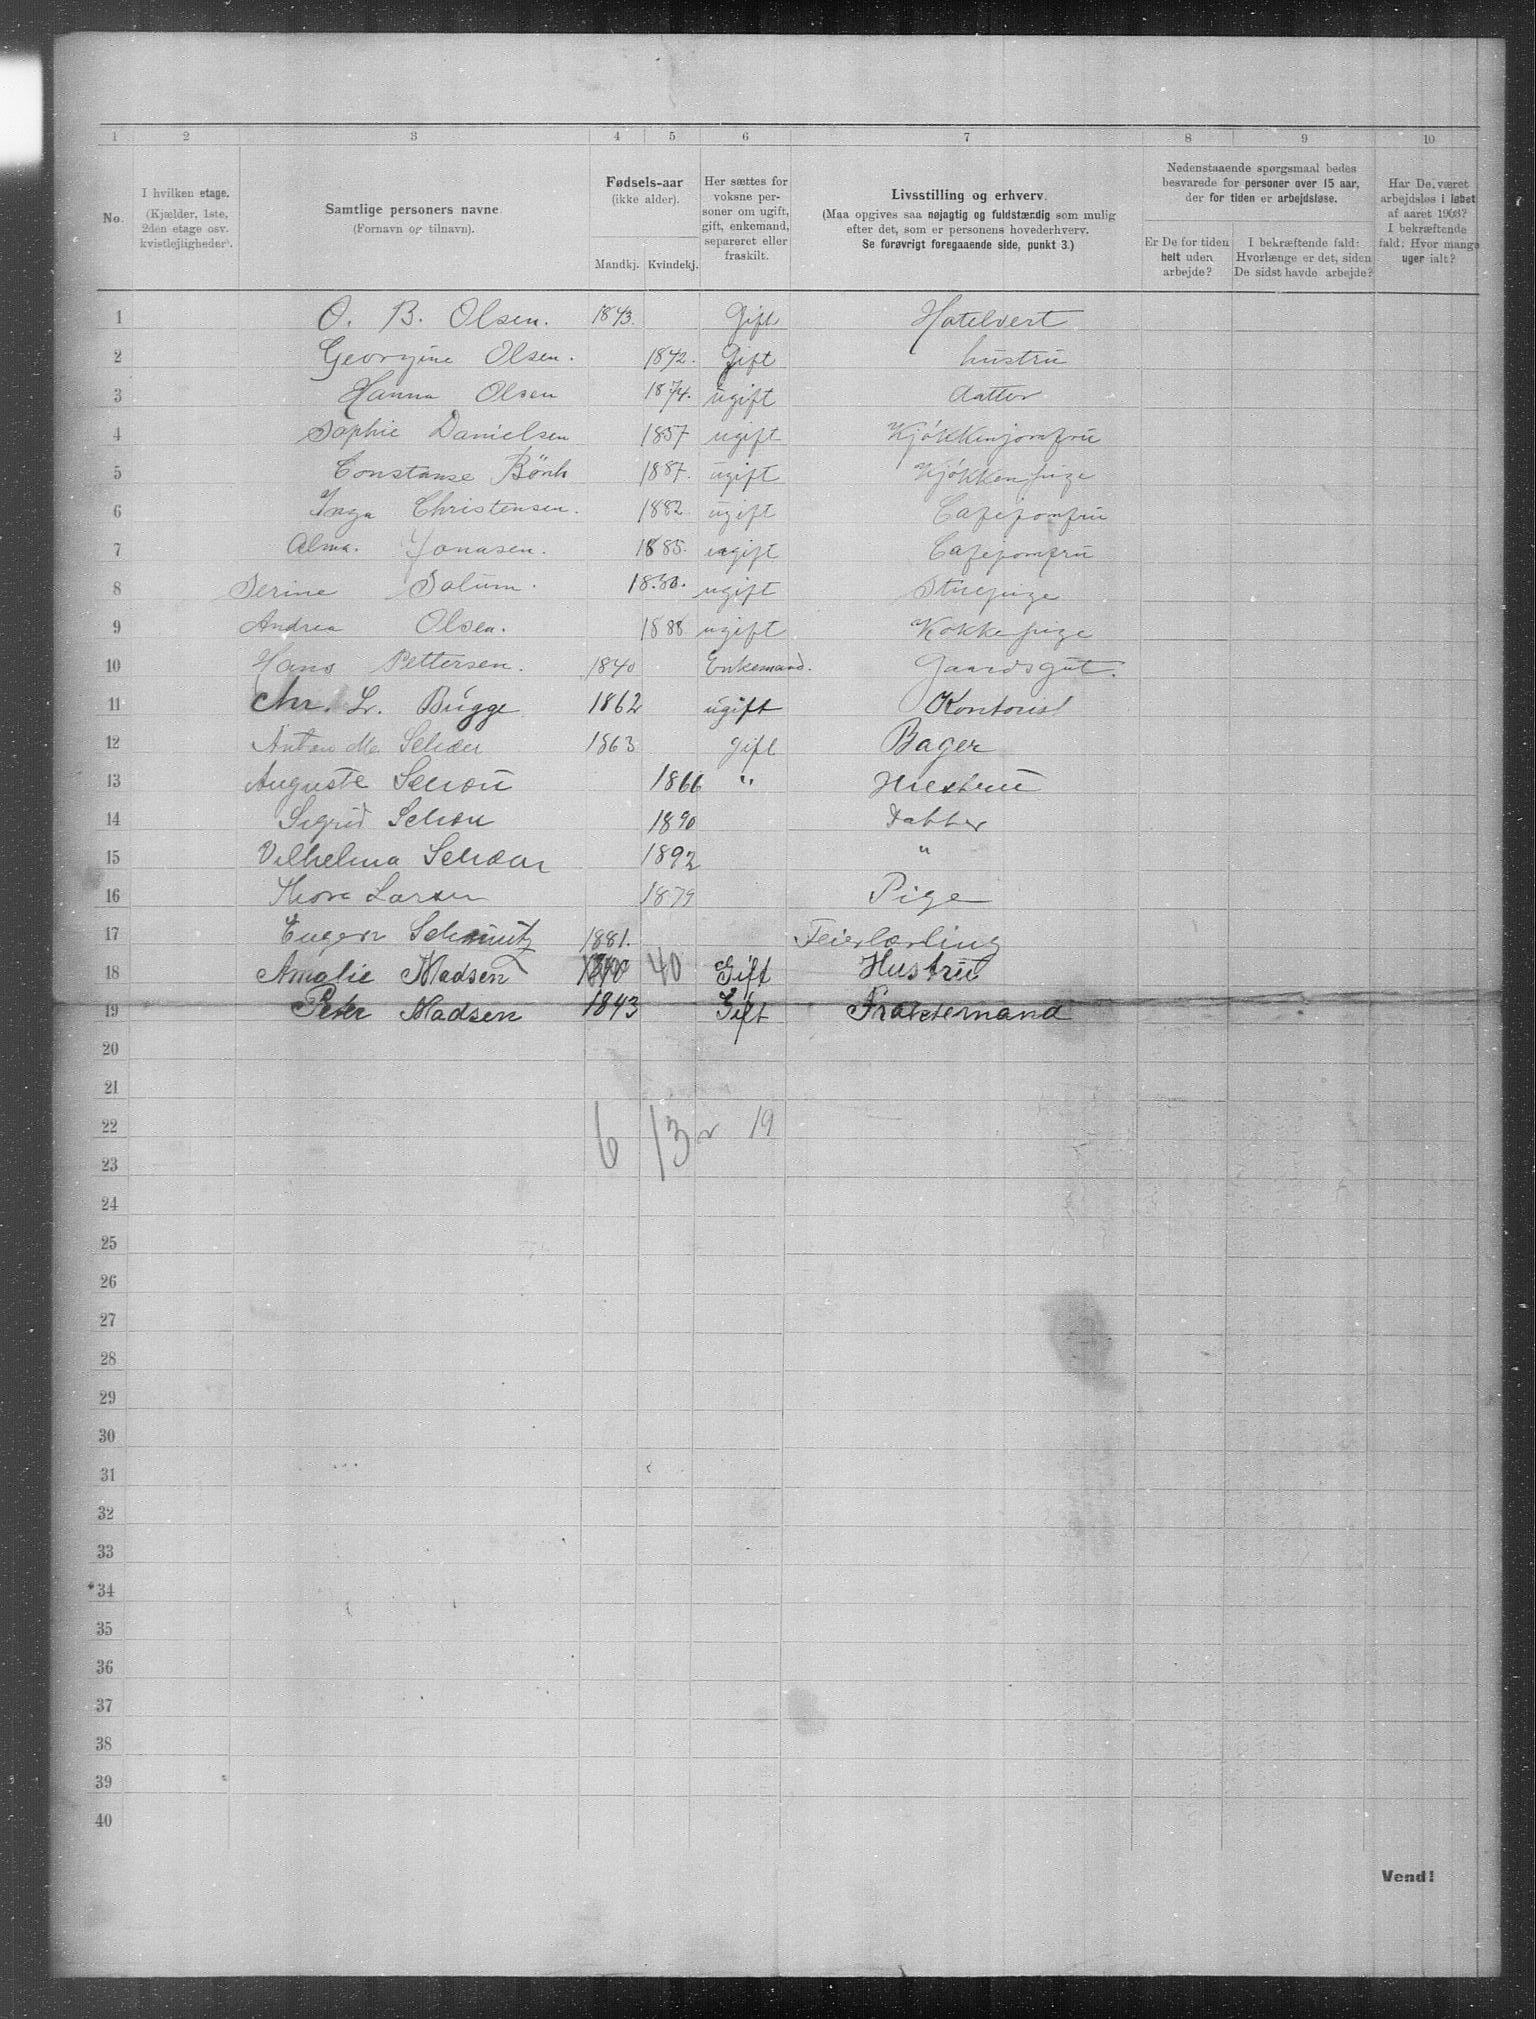 1 2 3 4 5 6 7 8 9 10
No.
I hvilken etage.
(Kjælder, 1ste,
2den etage osv.
kvistleiligheder).
Samtlige personers navne
(Fornavn og tilnavn).
Fødsels-aar
(ikke alder).
Mandkj. Kvindekj.
Her sættes for
voksne per-
soner om ugift,
gift, enkemand,
separeret eller
fraskilt.
Livsstilling og erhverv.
(Maa opgives saa nøjagtig og fuldstændig som mulig
efter det, som er personens hovederhverv.
Se forøvrigt foregaaende side, punkt 3.)
Nedenstaaende spørgsmaal bedes
besvarede for personer over 15 aar,
der for tiden er arbejdsløse.
Er De for tiden
helt uden
arbejde?
I bekræftende fald:
Hvorlænge er det, siden
De sidst havde arbejde?
Har De været
arbejdsløs i løbet
af aaret 1903?
I bekræftende
fald: Hvor mange
uger ialt?
1 O. B. Olsen. 1843. Gift Hotelvert
2 Georgine Olsen. 1842. Gift hustru
3 Hanna Olsen 1874. ugift datter
4 Sophie Danielsen 1857 ugift Kjøkkenjomfru
5 Constanse 1887. ugift Kjøkkenpige
6 Inga Christensen. 1882 ugift Cafejomfru
7 Alma. Jonasen. 1885. ugift Cafejomfru
8 Serine Solum. ugift Stuepige
9 Andrea Olsen. 1888 ugift Kokkepige
10 Hans Pettersen. 1840 Enkemand. Gaardsgut.
11 Chr. L. Bugge 1862 ugift Kontorist
12 Anton M. 1863 gift Bager
13 Auguste Schou 1866 " Hustru
14 Sigrid Schou 1890 Datter
15 Vilhelma 1892 "
16 Thora Larsen 1879 Pige
17 Eugen Schmutz 1881. Feierlærling
18 Amalie Madsen 40 Gift Hustru
19 Peter Madsen 1843 Gift
20
21
22 6 13 19
23
24
25
26
27
28
29
30
31
32
33
34
35
36
37
38
39
40
Vend!